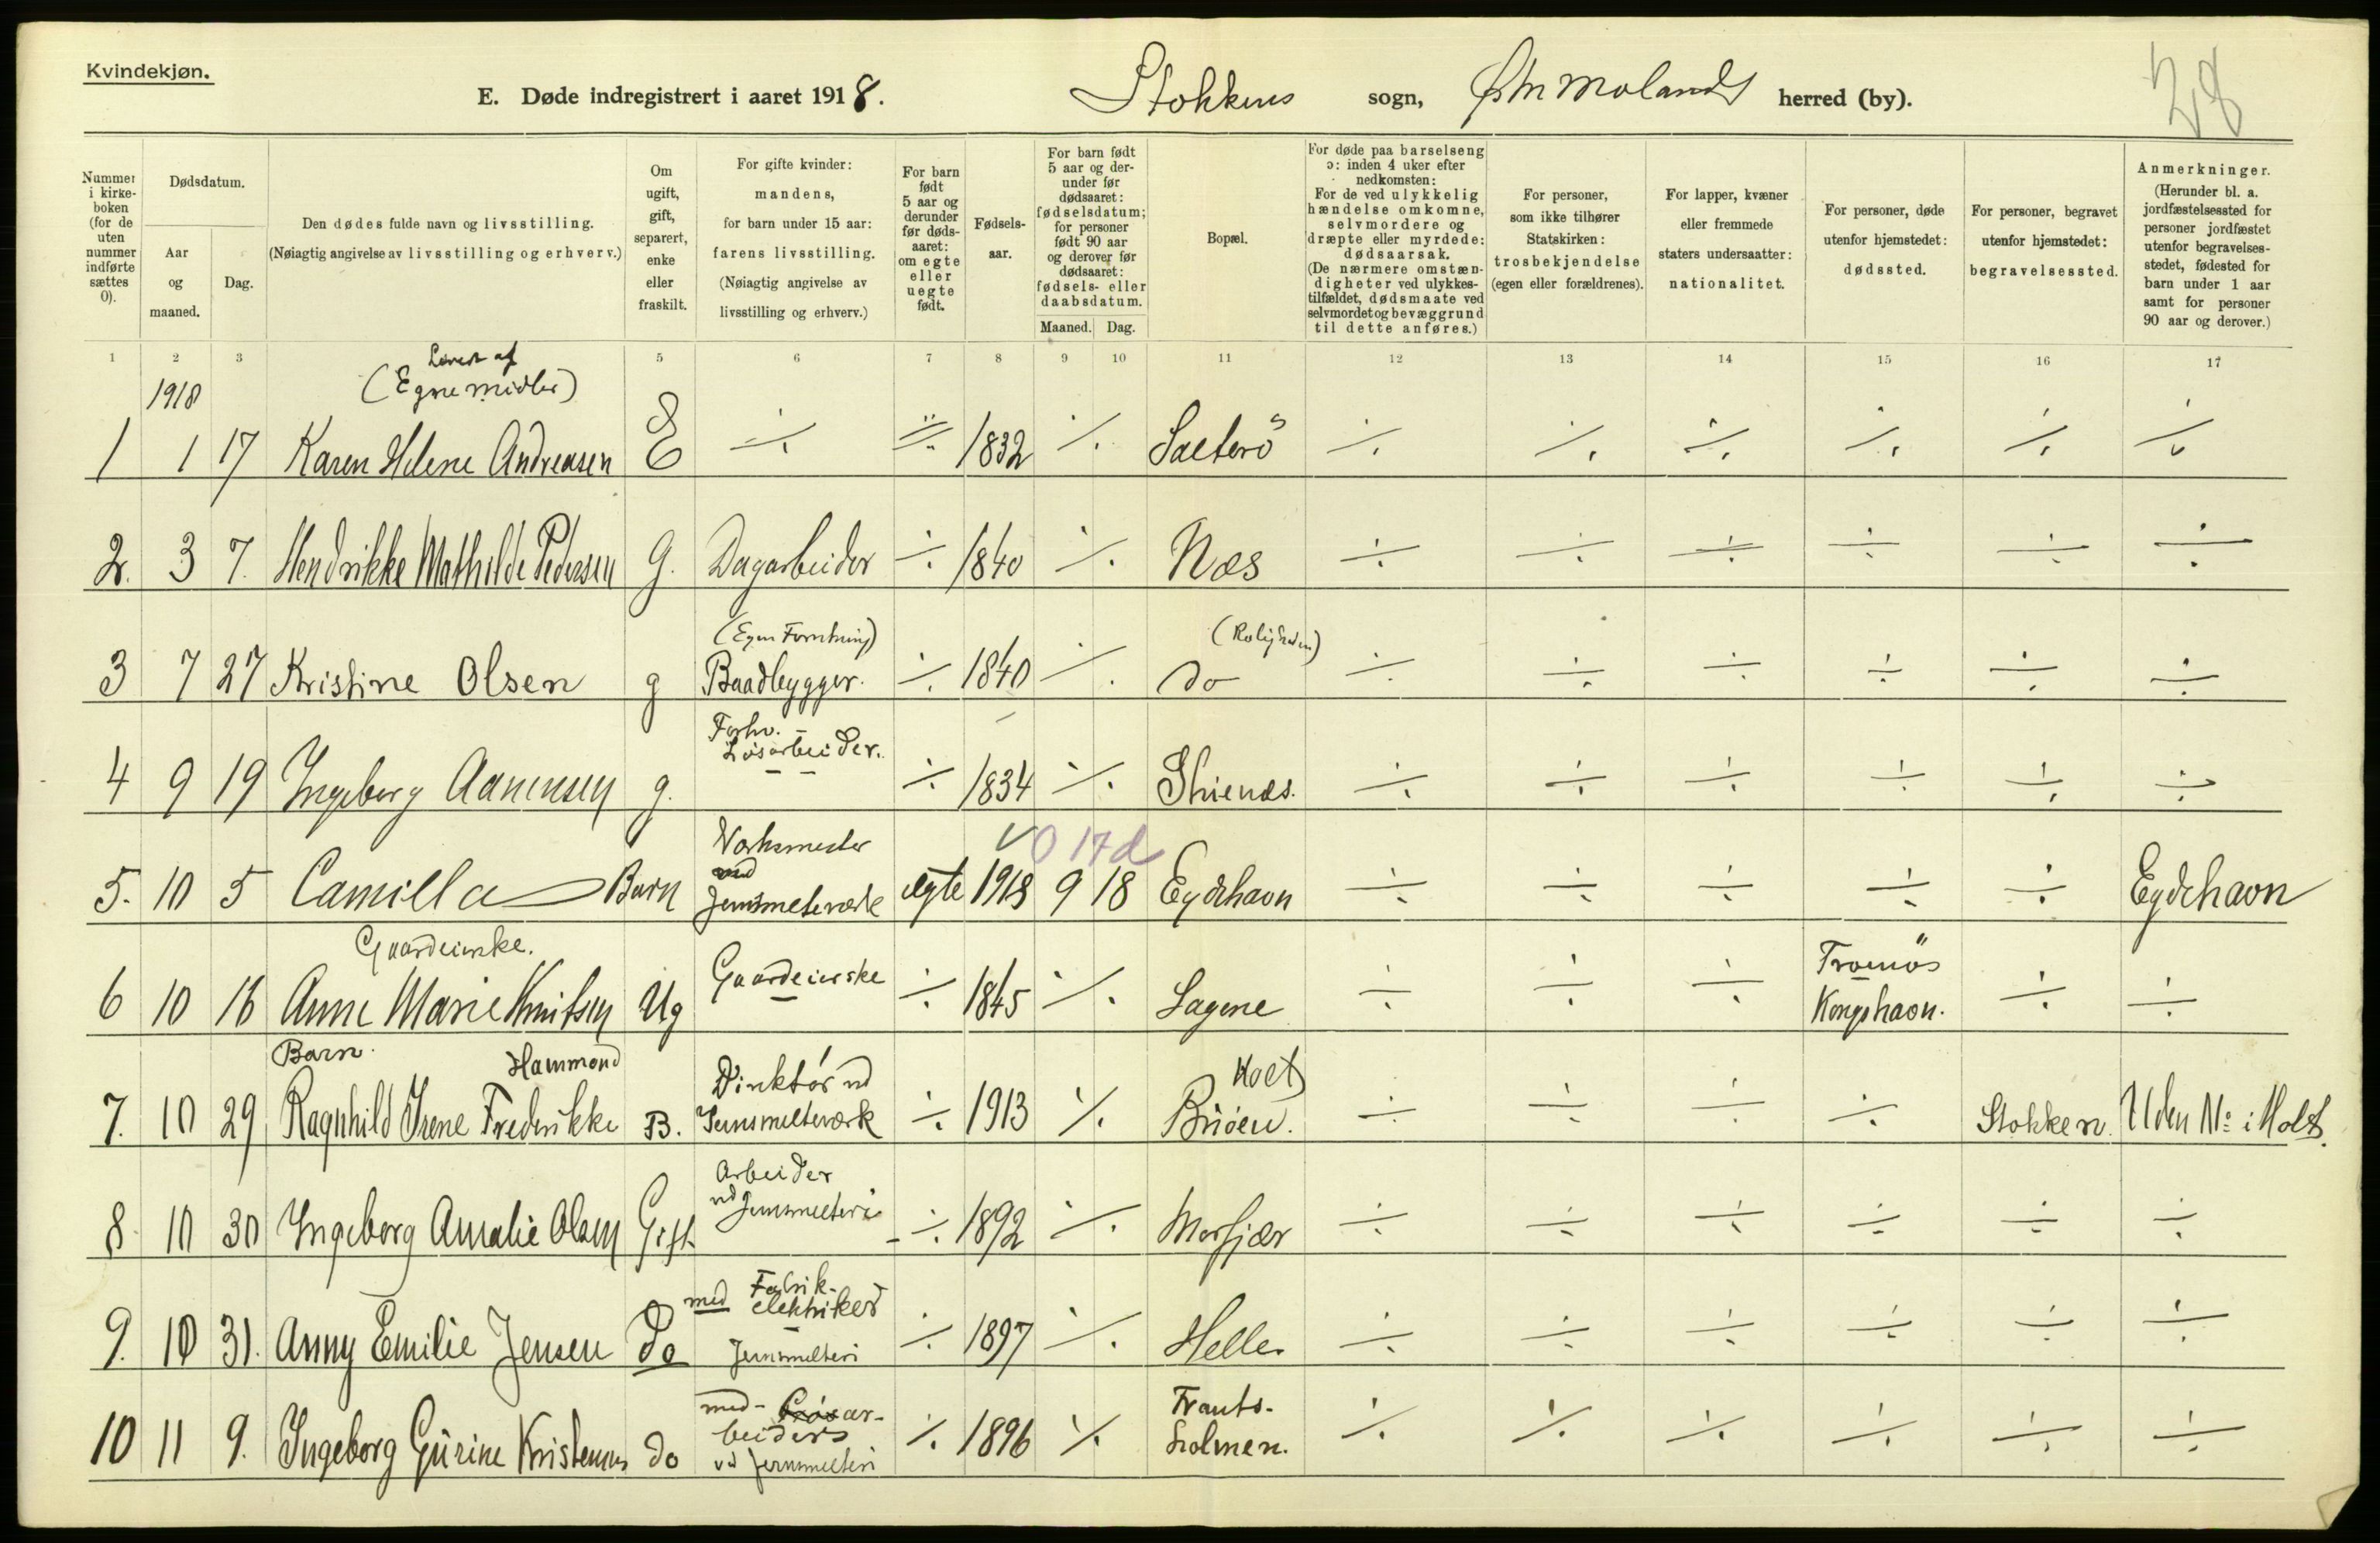 Kvindekjøn.
E. Døde indregistrert i aaret 1918. Stokkens sogn, Østre Molands herred (by).
28
Nummer i kirkeboken (for de uten nummer indførte sættes 0).
Dødsdatum.
Aar og maaned.
Dag.
Den dødes fulde navn og livsstilling.
(Nøiagtig angivelse av livsstilling og erhverv.)
Om ugift, gift, separert, enke eller fraskilt.
For gifte kvinder: mandens, for barn under 15 aar: farens livsstilling. (Nøiagtig angivelse av livsstilling og erhverv.)
For barn født 5 aar og derunder før dødsaaret: om egte eller uegte født.
Fødselsaar.
For barn født 5 aar og derunder før dødsaaret: fødselsdatum; for personer født 90 aar og derover før dødsaaret: fødsels- eller daabsdatum.
Maaned. Dag.
Bopæl.
For døde paa barselseng ɔ: inden 4 uker efter nedkomsten: For de ved ulykkelig hændelse omkomne, selvmordere og dræpte eller myrdede: dødsaarsak. (De nærmere omstændigheter ved ulykkestilfældet, dødsmaate ved selvmordet og bevæggrund til dette anføres.)
For personer, som ikke tilhører Statskirken: trosbekjendelse (egen eller forældrenes).
For lapper, kvæner eller fremmede staters undersaatter: nationalitet.
For personer, døde utenfor hjemstedet: dødssted.
For personer, begravet utenfor hjemstedet: begravelsessted.
Anmerkninger. (Herunder bl. a. jordfæstelsessted for personer jordfæstet utenfor begravelsesstedet, fødested for barn under 1 aar samt for personer 90 aar og derover.)
1 2 3 5 6 7 8 9 10 11 12 13 14 15 16 17
Levet af
1918 (Egne midler)
1 1 17 Karen Helene Andreasen E ÷ ÷ 1832 ÷ Sæterö ÷ ÷ ÷ ÷ ÷ ÷
2. 3 7. Hendrikke Mathilde Pedersen G. Dagarbeider ÷ 1840 ÷ Næs ÷ ÷ ÷ ÷ ÷ ÷
(Egen Forretning) (Roligheden)
3 7 27 Kristine Olsen g Baadbygger. ÷ 1840 ÷ do ÷ ÷ ÷ ÷ ÷ ÷
Forhv.
Løsarbeider.
4 9 19 Ingeborg Aanensen g. ÷ 1834 ÷ ÷ ÷ ÷ ÷ ÷ ÷
Verksmester 0 17 d
ved
5. 10 5 Camilla Barn Jernsmelteverk egte 1918 9 18 Eydehavn ÷ ÷ ÷ ÷ ÷ Eydehavn
Gaardeierske.
Gaardeierske Tromøs
6 10 16 Anne Marie Knutsen Ug ÷ 1845 ÷ Lagene ÷ ÷ ÷ Kongshavn. ÷ ÷
Barn. Hammond Direktør ved Holt
7. 10 29 Ragnhild Irene Frederikke B. Jernsmelteværk ÷ 1913 ÷ ÷ ÷ ÷ ÷ Stokken. Uden No i Holt.
Arbeider
8 10 30 Ingeborg Amalie Olsen Gift ved Jernsmelteri ÷ 1892 ÷ Morfjær ÷ ÷ ÷ ÷ ÷ ÷
med Fabrik-
elektriker
9. 10 31. Anny Emilie Jensen do Jernsmelteri ÷ 1897 ÷ Helle. ÷ ÷ ÷ ÷ ÷ ÷
med Løsar- Frants-
beiders
10 11 9. Ingeborg Gurine Kristensen do vd Jernsmelteri ÷ 1896 ÷ holmen. ÷ ÷ ÷ ÷ ÷ ÷